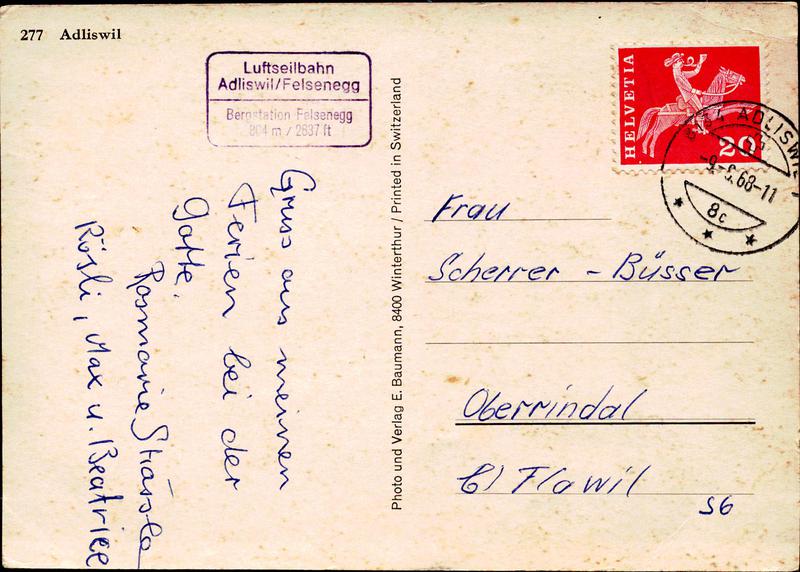 277 Adliswil
Luftseilbahn
Adliswil/Felsenegg
Bergstation Felsenegg
804 m / 2637 ft
Gruss aus meinen
Ferien bei der
Gotte.
Rosmarie Strässle
Rösli, Max u. Beatrice
Photo und Verlag E. Baumann, 8400 Winterthur / Printed in Switzerland
HELVETIA
20
8134 ADLISWIL
68-11
8c
Frau
Scherrer - Büsser
Oberrindal
b/ Flawil
S6